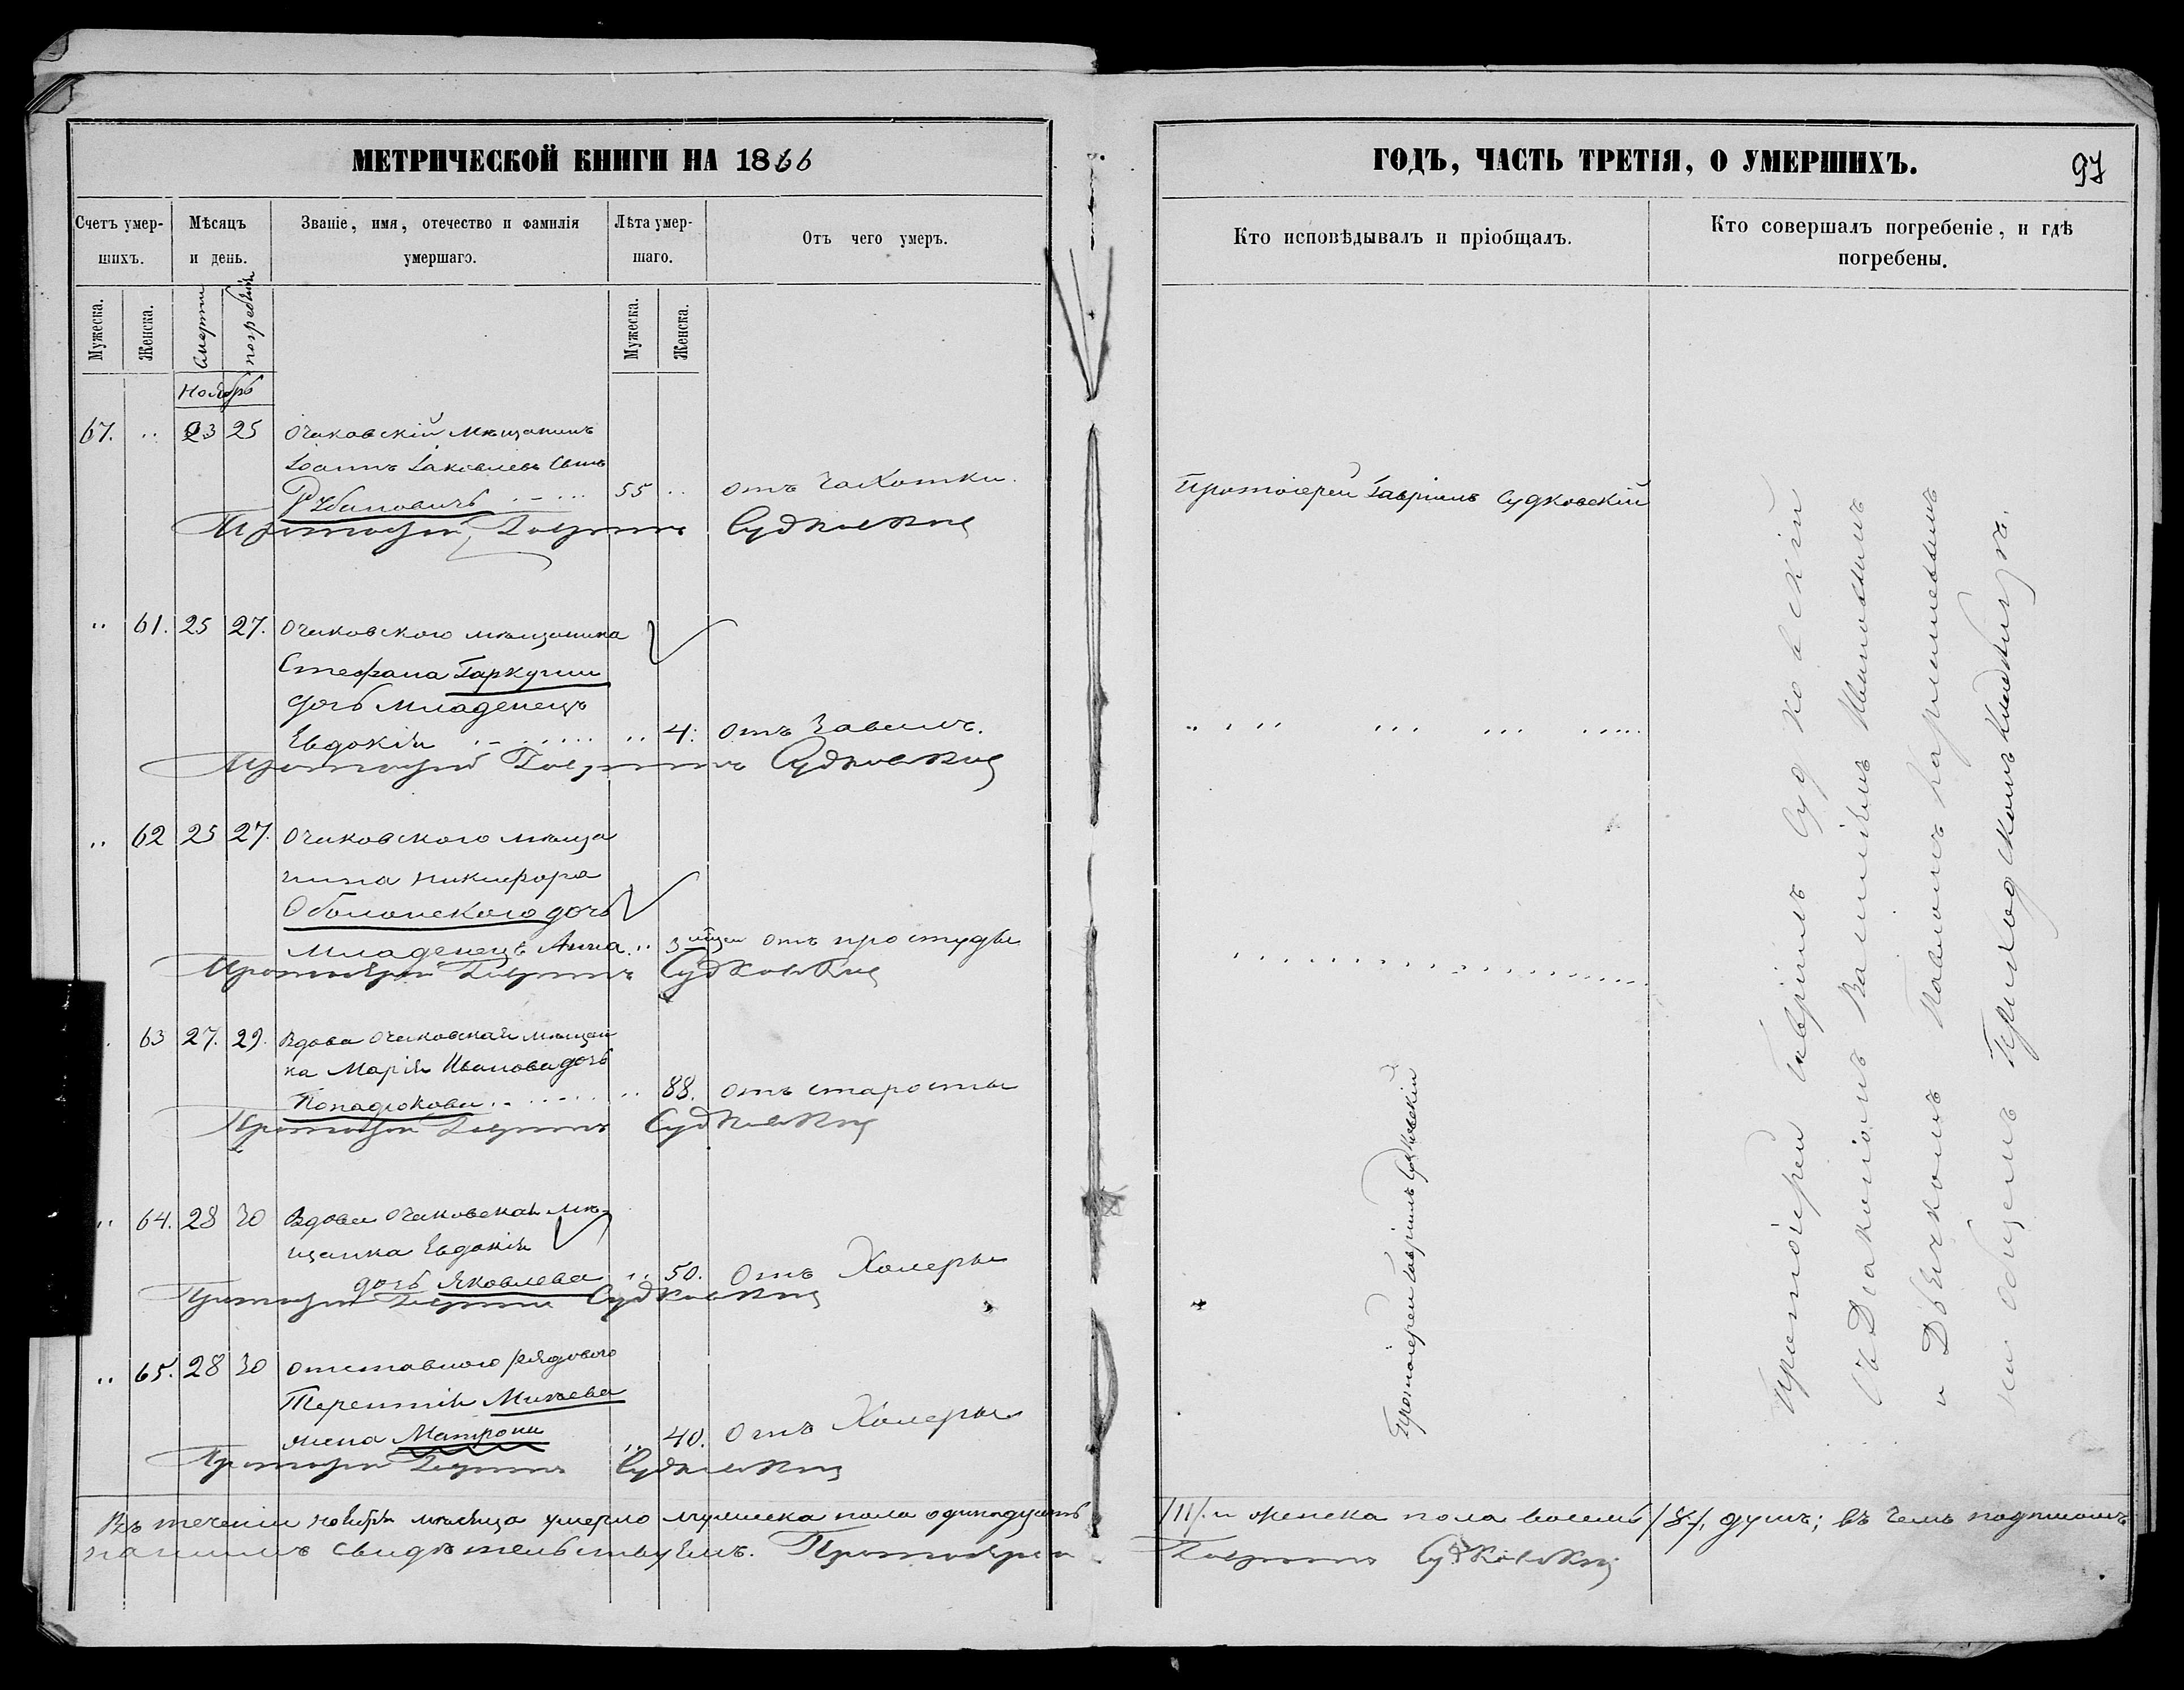 МЕТРИЧЕСКОЙ КНИГИ НА 1866
Счетъ умер-
шихъ.
Мѣсяцъ
и день.
Званіе, имя, отечество и фамилія
умершаго.
Лѣта умер-
шаго.
Отъ чего умеръ.
Мужеска.
Женска.
смерти
погребенія
Мужеска.
Женска.
Ноябрь
67. .. 23 25 Очаковскій мѣщанинъ
Іоаннъ Іаковлевъ сынъ
55 .. отъ чахотки.
Протоіерей Гавріилъ Судковскій
.. 61. 25 27. Очаковскаго мѣщанина
Стефана Гаркуши
дочь младенецъ
Евдокія .. 4. отъ завалъ.
Протоіерей Гавріилъ Судковскій
.. 62 25 27. Очаковскаго мѣща
нина Никифора
Оболонскаго дочь
младенецъ Анна .. 3 мѣсяц отъ простуды
Протоіерей Гавріилъ Судковскій
63 27. 29. Вдова Очаковская мѣщан
ка Марія Иванова дочь
Попадюкова .. 88. отъ старости
Протоіерей Гавріилъ Судковскій
.. 64. 28 30 Вдова Очаковская мѣ-
щанка Евдокія
дочь Яковлева .. 50. отъ Холеры
Протоіерей Гавріилъ Судковскій
.. 65. 28 30 Отставнаго рядоваго
Терентія Михева
жена Матрона .. 40. отъ Холеры
Протоіерей Гавріилъ Судковскій
Въ теченіи ноября мѣсяца умерло мужеска пола одинадцать
нашимъ свидѣтельствуемъ. Протоіерей
ГОДЪ, ЧАСТЬ ТРЕТІЯ, О УМЕРШИХЪ.
97
Кто исповѣдывалъ и пріобщалъ.
Кто совершалъ погребеніе, и гдѣ
погребены.
Протоіерей Гавріилъ Судковскій
Протоіерей Гавріилъ Судковскій
Протоіерей Гавріилъ Судковскій
съ Діакономъ
и Дьячкомъ Павломъ
на общемъ приходскомъ кладбищѣ.
/11/. и женска пола восемь /8/. душъ; въ чемъ подписомъ
Гавріилъ Судковскій